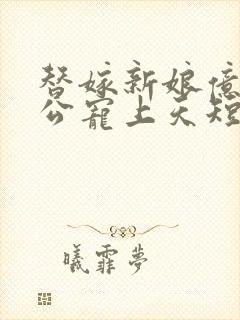 替嫁新娘億
公寵上天短
曦霏夢